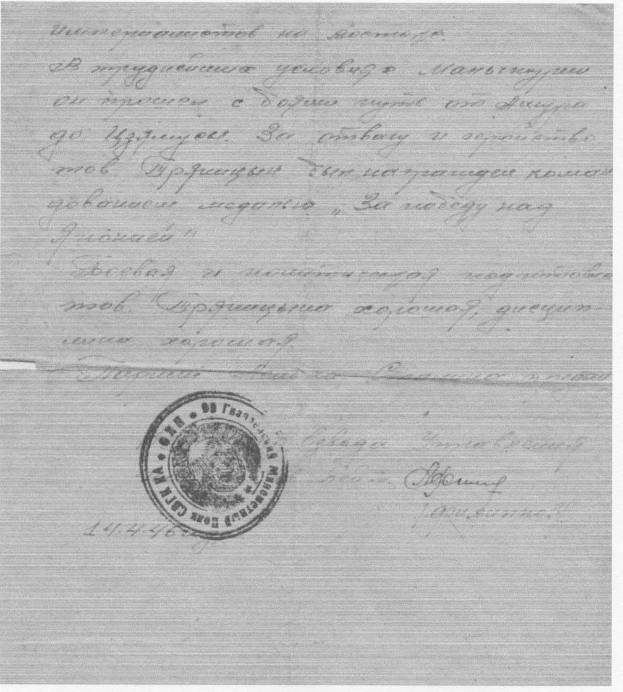 империалистов на востоке.
В труднейших условиях Маньчжурии
он прошел с боями путь от Амура
до Цзямусы. За отвагу и геройство
тов. Бряницын был награжден коман
дованием медалью „За победу над
Японией"
Боевая и политическая подготовка
тов. Бряницына хорошая, дисцип-
лина хорошая.
взвода Управления
лейт.
14.4.46
99 Гвардейский Минометный Полк СВГК КА